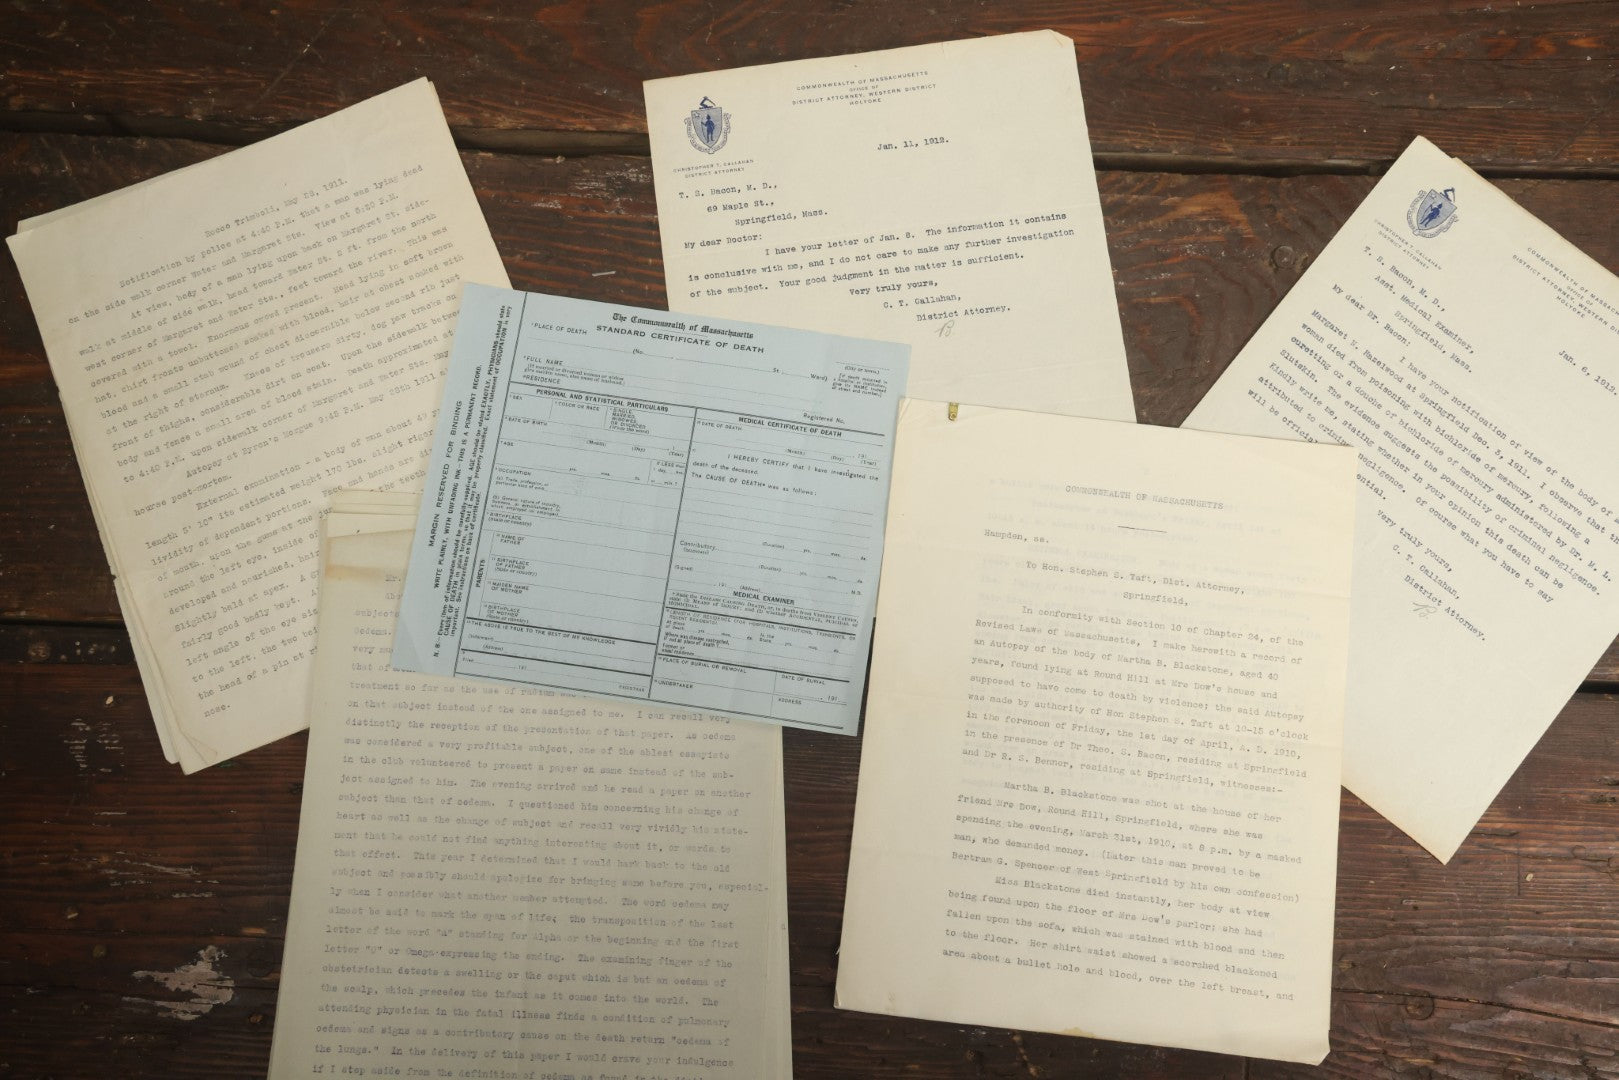 Rocco Trimboli, May 28, 1911.
Notification by police at 4:40 P.M. that a man was lying dead
on the side walk corner Water and Margaret Sts. View at 5:20 P.M.
At view, body of a man lying upon back on Margaret St. side-
walk at middle of side walk, head toward Water St. 2 ft. from the north
west corner of Margaret and Water Sts., feet toward the river. This was
covered with a towel. Enormous crowd present. Head lying in soft brown
hat, shirt fronts unbuttoned soaked with blood, hair at chest soaked with
blood and a small stab wound of chest discernible below second rib just
at the right of sternum. Knees of trousers dirty, dog jaw tracks on
front of thighs, considerable dirt on coat. Upon the sidewalk between
body and fence a small area of blood stain. Death approximated at
to 4:40 P.M. upon sidewalk corner of Margaret and Water Sts. May
Autopsy at Byron's Morgue 9:45 P.M. May 28th 1911
hours post-mortem.
External examination - a body of man about 40
length 5' 10" its estimated weight 170 lbs. slight rigor
lividity of dependent portions. Face and hands are
of month, upon the gums at the
around the left eye. Inside of
developed and nourished, hair
Slightly bald at apex. A
fairly good badly kept.
left angle of the eye
to the left, the two
the head of a pin at
nose.
COMMONWEALTH OF MASSACHUSETTS
OFFICE OF
DISTRICT ATTORNEY, WESTERN DISTRICT
HOLYOKE
CHRISTOPHER T. CALLAHAN
DISTRICT ATTORNEY
Jan. 11, 1912.
T. S. Bacon, M. D.,
69 Maple St.,
Springfield, Mass.
My dear Doctor:
I have your letter of Jan. 8. The information it contains
is conclusive with me, and I do not care to make any further investigation
of the subject. Your good judgment in the matter is sufficient.
Very truly yours,
C. T. Callahan,
District Attorney.
B.
COMMONWEALTH OF MASSACHUSETTS
OFFICE OF
DISTRICT ATTORNEY, WESTERN
HOLYOKE
CHRISTOPHER T. CALLAHAN
DISTRICT ATTORNEY
Jan. 6, 1912.
T. S. Bacon, M. D.,
Asst. Medical Examiner,
Springfield, Mass.
My dear Dr. Bacon:
I have your notification of view of the body of
Margaret N. Haselwood at Springfield Dec. 5, 1911. I observe that
woman died from poisoning with bichloride of mercury, following a
curetting or a douche of bichloride of mercury administered by Dr. M. L.
Slutskin. The evidence suggests the possibility of criminal negligence.
Kindly write me, stating whether in your opinion this death can be
attributed to criminal negligence. Of course what you have to say
will be
Very truly yours,
C. T. Callahan,
District Attorney.
B.
The Commonwealth of Massachusetts
STANDARD CERTIFICATE OF DEATH
PLACE OF DEATH
(No.
St.
Ward)
(City or town.)
FULL NAME
RESIDENCE
Registered No.
PERSONAL AND STATISTICAL PARTICULARS
MEDICAL CERTIFICATE OF DEATH
SEX
COLOR OR RACE
SINGLE,
MARRIED,
WIDOWED,
OR DIVORCED
(Write the word)
DATE OF DEATH
DATE OF BIRTH
(Month)
(Day)
(Year)
I HEREBY CERTIFY that I have investigated the
death of the deceased.
The CAUSE OF DEATH* was as follows:
AGE
OCCUPATION
BIRTHPLACE
(State or country)
Contributory
(Duration)
PARENTS
NAME OF
FATHER
BIRTHPLACE
OF FATHER
(State or country)
MAIDEN NAME
OF MOTHER
BIRTHPLACE
OF MOTHER
(State or country)
(Signed)
(Address)
MEDICAL EXAMINER
THE ABOVE IS TRUE TO THE BEST OF MY KNOWLEDGE
(Informant)
(Address)
Filed
PLACE OF BURIAL OR REMOVAL
DATE OF BURIAL
UNDERTAKER
ADDRESS
MARGIN RESERVED FOR BINDING
WRITE PLAINLY, WITH UNFADING INK—THIS IS A PERMANENT RECORD.
treatment so far as the use of radium was
on that subject instead of the one assigned to me. I can recall very
distinctly the reception of the presentation of that paper. As oedema
was considered a very profitable subject, one of the ablest essayists
in the club volunteered to present a paper on same instead of the sub-
ject assigned to him. The evening arrived and he read a paper on another
subject than that of oedema. I questioned him concerning his change of
heart as well as the change of subject and recall very vividly his state-
ment that he could not find anything interesting about it, or words to
that effect. This year I determined that I would hark back to the old
subject and possibly should apologize for bringing same before you, especial-
ly when I consider what another member attempted. The word oedema may
almost be said to mark the span of life; the transposition of the last
letter of the word "A" standing for Alpha or the beginning and the first
letter "O" or Omega expressing the ending. The examining finger of the
obstetrician detects a swelling or the caput which is but an oedema of
the scalp, which precedes the infant as it comes into the world. The
attending physician in the fatal illness finds a condition of pulmonary
oedema and signs as a contributory cause on the death return "oedema of
the lungs." In the delivery of this paper I would crave your indulgence
if I step aside from the definition of oedema as found in the
COMMONWEALTH OF MASSACHUSETTS
Hampden, ss.
To Hon. Stephen S. Taft, Dist. Attorney,
Springfield,
In conformity with Section 10 of Chapter 24, of the
Revised Laws of Massachusetts, I make herewith a record of
an Autopsy of the body of Martha B. Blackstone, aged 40
years, found lying at Round Hill at Mrs Dow's house and
supposed to have come to death by violence; the said Autopsy
was made by authority of Hon Stephen S. Taft at 10-15 o'clock
in the forenoon of Friday, the 1st day of April, A. D. 1910,
in the presence of Dr Theo. S. Bacon, residing at Springfield
and Dr R. S. Benner, residing at Springfield, witnesses:-
Martha B. Blackstone was shot at the house of her
friend Mrs Dow, Round Hill, Springfield, where she was
spending the evening, March 31st, 1910, at 8 p.m. by a masked
man, who demanded money. (Later this man proved to be
Bertram G. Spencer of West Springfield by his own confession)
Miss Blackstone died instantly, her body at view
being found upon the floor of Mrs Dow's parlor; she had
fallen upon the sofa, which was stained with blood and then
to the floor. Her shirt waist showed a scorched blackened
area about a bullet hole and blood, over the left breast, and